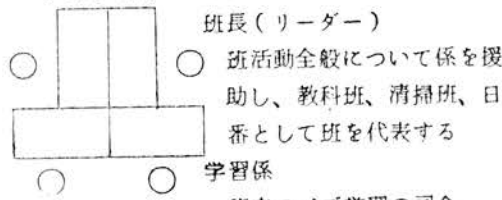 班長(リーダー)
班活動全般について係を援
助し、教科班、清掃班、日
番として班を代表する
学習係